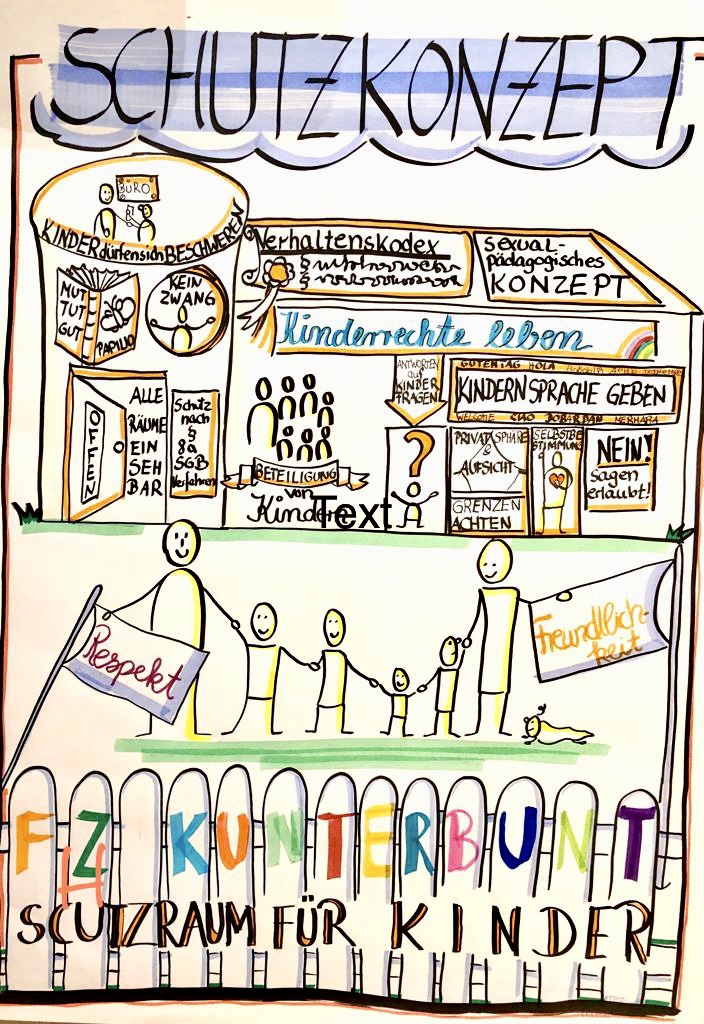 SCHUTZKONZEPT
BÜRO
KINDER dürfen sich BESCHWEREN
MUT
TUT
GUT
PAPILIO
KEIN
ZWANG
Verhaltenskodex
§
§
Sexual-
pädagogisches
KONZEPT
Kinderrechte leben
OFFEN
ALLE
RÄUME
EIN
SEH
BAR
Schutz
nach
§
8a
SGB
Verfahren
BETEILIGUNG
von
Kindern
Text
ANTWORTEN
auf
KINDER
FRAGEN
?
GUTEN TAG HOLA
KINDERN SPRACHE GEBEN
WELCOME CIAO DOBAR DAN MERHABA
PRIVATSPHÄRE
&
AUFSICHT
GRENZEN
ACHTEN
SELBSTBE
STIMMUNG
NEIN!
sagen
erlaubt!
Respekt
Freundlich-
keit
FZ KUNTERBUNT
H
SCUTZRAUM FÜR KINDER